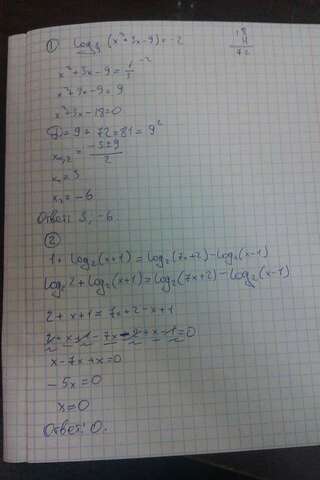 ① log⅓ (x²+3x-9)=-2
x²+3x-9=⅓⁻²
x²+3x-9=9
x²+3x-18=0
D=9+72=81=9²
x₁,₂=(-3±9)/2
x₁=3
x₂=-6
Ответ: 3, -6.
18
4
72
②
1+log₂(x+1)=log₂(7x+2)-log₂(x-1)
log₂2+log₂(x+1)=log₂(7x+2)-log₂(x-1)
2+x+1=7x+2-x+1
2+x+1-7x-2+x-1=0
x-7x+x=0
-5x=0
x=0
Ответ: 0.